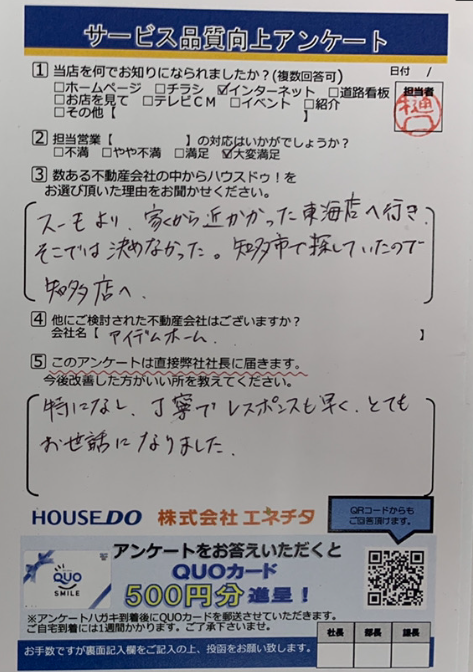 サービス品質向上アンケート
1 当店を何でお知りになられましたか？(複数回答可)
日付 /
□ホームページ □チラシ ☑インターネット □道路看板
□お店を見て □テレビCM □イベント □紹介
□その他【 】
担当者
樋口
2 担当営業【 】の対応はいかがでしょうか？
□不満 □やや不満 □満足 ☑大変満足
3 数ある不動産会社の中からハウスドゥ！を
お選び頂いた理由をお聞かせください。
スーモより、家から近かった東海店へ行き、
そこでは決めなかった。知多市で探していたので
知多店へ、
4 他にご検討された不動産会社はございますか？
会社名【 アイデムホーム. 】
5 このアンケートは直接弊社社長に届きます。
今後改善した方がいい所を教えてください。
特になし、丁寧でレスポンスも早く、とても
お世話になりました.
HOUSEDO 株式会社エネチタ
QRコードからも
ご回答頂けます。
QUO
SMILE
アンケートをお答えいただくと
QUOカード
500円分進呈！
※アンケートハガキ到着後にQUOカードを郵送させていただきます。
ご自宅到着には1週間かかります。ご了承下さいませ。
お手数ですが裏面記入欄をご記入の上、投函をお願い致します。
社長 部長 課長